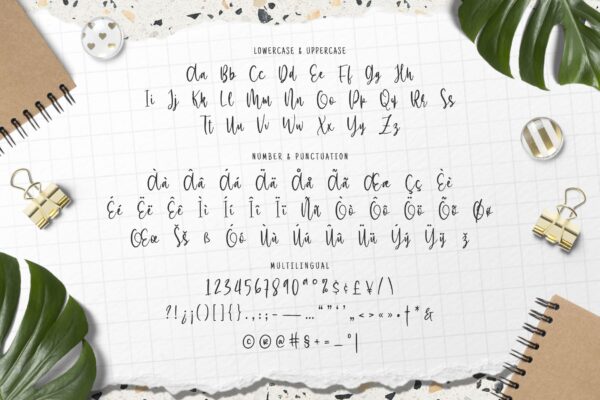 LOWERCASE & UPPERCASE
Aa Bb Cc Dd Ee Ff Gg Hh
Ii Jj Kk Ll Mm Nn Oo Pp Qq Rr Ss
Tt Uu Vv Ww Xx Yy Zz
NUMBER & PUNCTUATION
Àà Ââ Áá Ää Åå Ãã Ææ Çç Èè
Éé Ëë Êê Ìì Íí Îî Ïï Ññ Òò Ôô Öö Õõ Øø
Œœ Šš ß Óó Ùù Úú Ûû Üü Ýý Ÿÿ ž
MULTILINGUAL
1234567890ªº%$¢£¥/\
?!¿¡()[]{}.,:;-–—…“”‘’„<>«»•†*&
©®@#§+=_°|